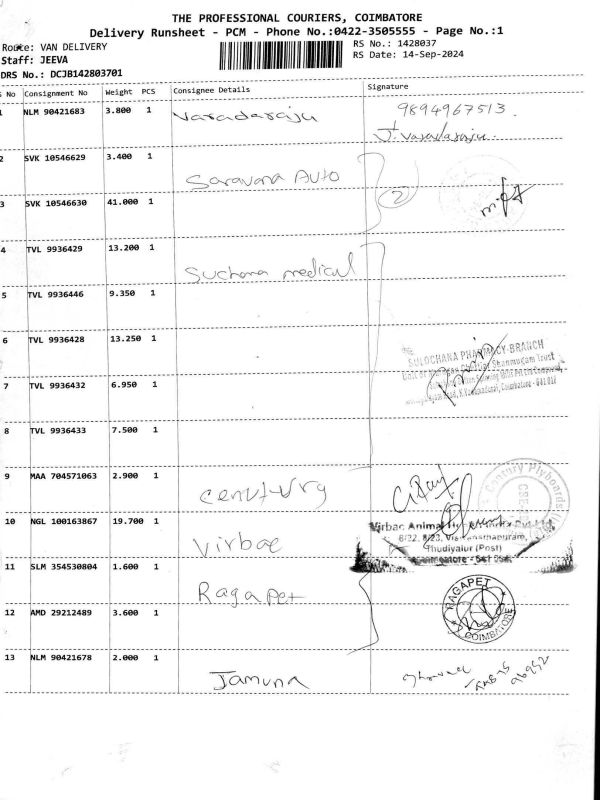 THE PROFESSIONAL COURIERS, COIMBATORE
Delivery Runsheet - PCM - Phone No.:0422-3505555 - Page No.:1
Route: VAN DELIVERY
Staff: JEEVA
DRS No.: DCJB142803701
RS No.: 1428037
RS Date: 14-Sep-2024
S No Consignment No Weight PCS Consignee Details Signature
1 NLM 90421683 3.800 1 Varadaraju 9894967513.
J. Varadaraju.
2 SVK 10546629 3.400 1 Saravana Auto 2
3 SVK 10546630 41.000 1
4 TVL 9936429 13.200 1 Suchana medical
5 TVL 9936446 9.350 1
6 TVL 9936428 13.250 1 SULOCHANA PHARMACY-BRANCH
Shanmugam Trust
7 TVL 9936432 6.950 1 Coimbatore - 641
8 TVL 9936433 7.500 1
9 MAA 704571063 2.900 1 Century Century Plyboards
10 NGL 100163867 19.700 1 Virbac Virbac Animal
6/22, 8/23, Viswanathapuram,
Thudiyalur (Post)
Coimbatore - 641
11 SLM 354530804 1.600 1 Ragapet
RAGAPET
COIMBATORE
12 AMD 29212489 3.600 1
13 NLM 90421678 2.000 1 Jamuna